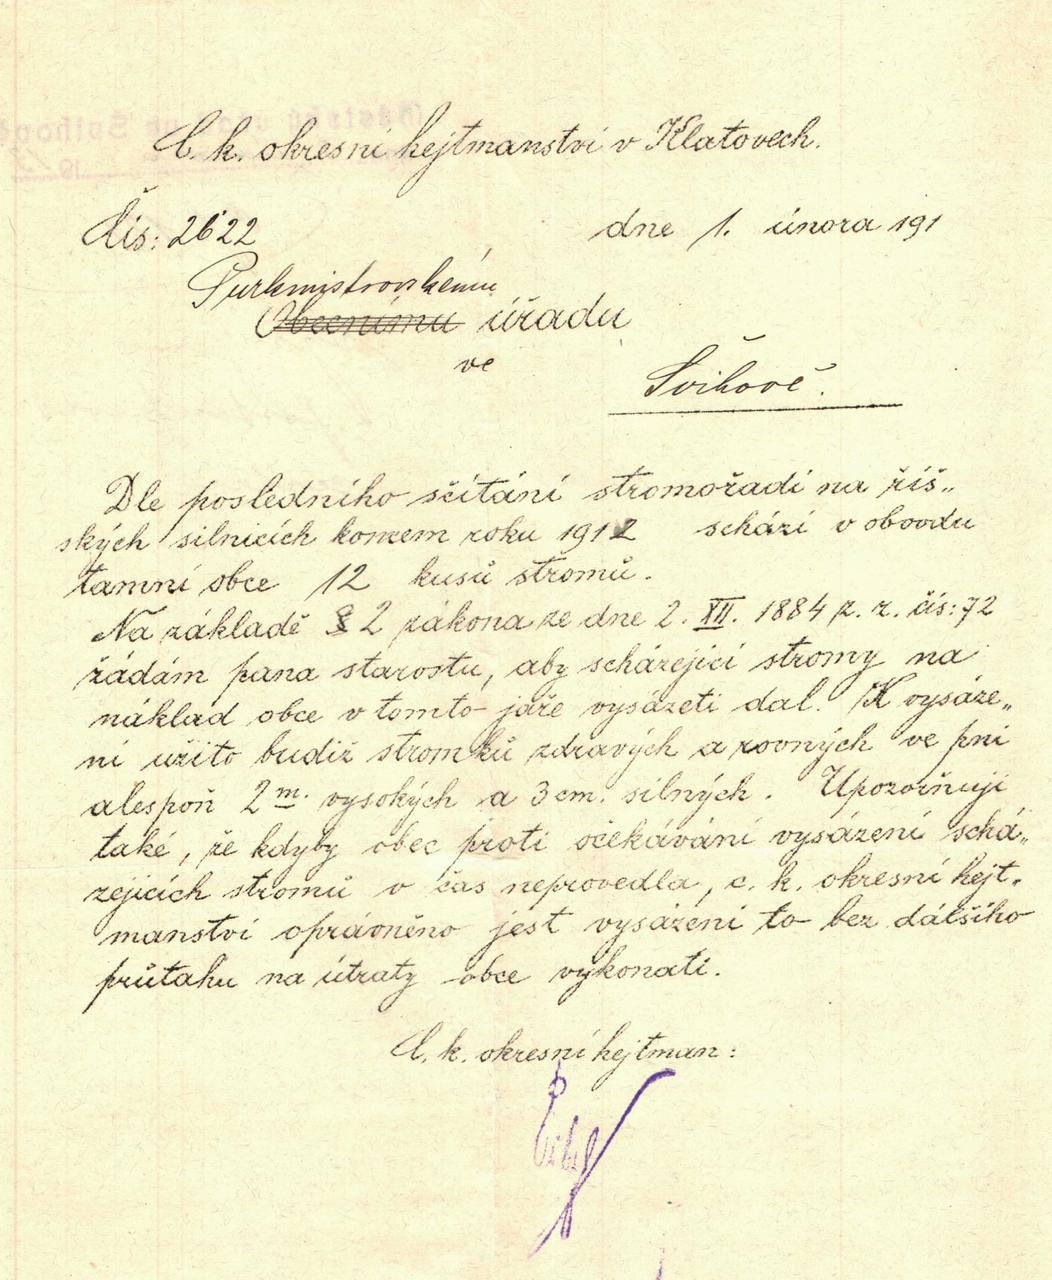 C. k. okresní hejtmanství v Klatovech.
Čís: 2622 dne 1. února 191
Purkmistrovskému
Obecnímu úřadu
ve
Švihově.
Dle posledního sčítání stromořadí na říš„
ských silnicích koncem roku 1912 schází v obvodu
tamní obce 12 kusů stromů.
Na základě § 2 zákona ze dne 2. XII. 1884 z. z. čís: 72
žádám pana starostu, aby scházející stromy na
náklad obce v tomto jáře vysázeti dal. K vysáze„
ní užito budiž stromků zdravých a rovných ve pni
alespoň 2 m. vysokých a 3 cm. silných. Upozorňuji
také, že kdyby obec proti očekávání vysázení schá„
zejících stromů v čas neprovedla, c. k. okresní hejt„
manství oprávněno jest vysázení to bez dalšího
průtahu na útraty obce vykonati.
C. k. okresní hejtman: